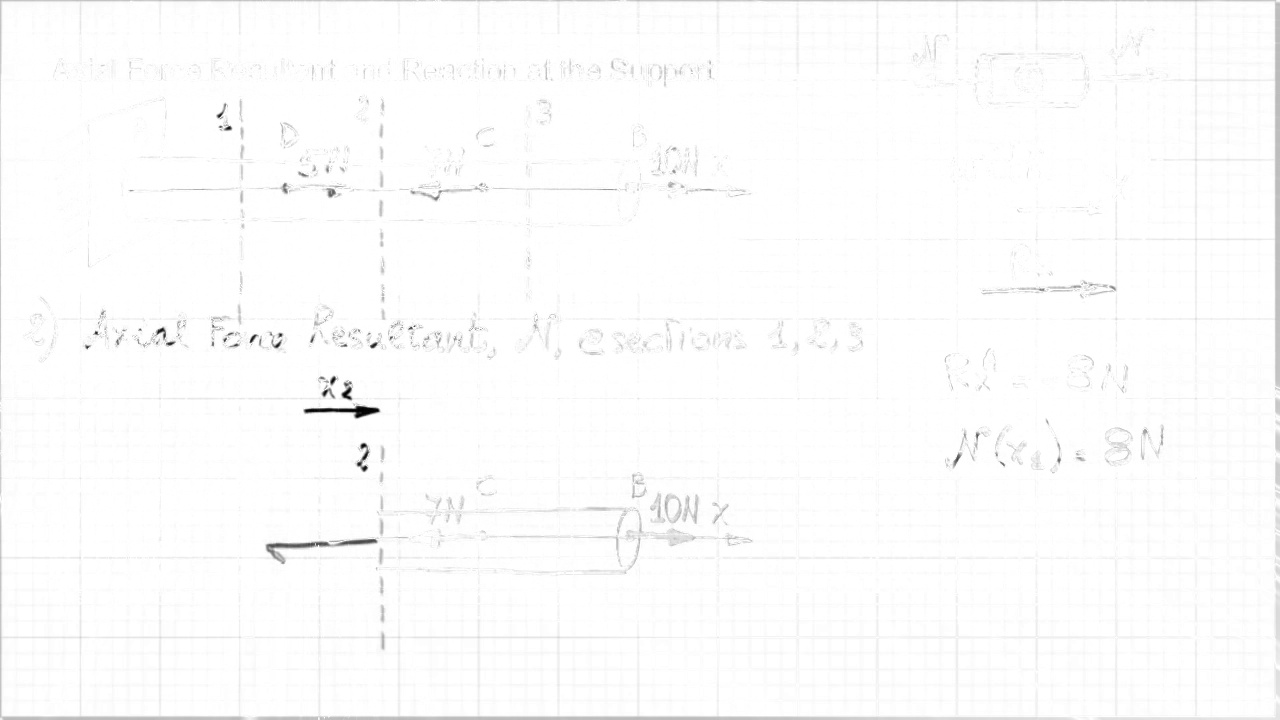 Axial Force Resultant and Reaction at the Support
N N
1 2 3
D C B
5N 7N 10N x
2) Axial Force Resultant, N, @ sections 1, 2, 3
x2
2
C B
7N 10N x
N(x1) = 8N